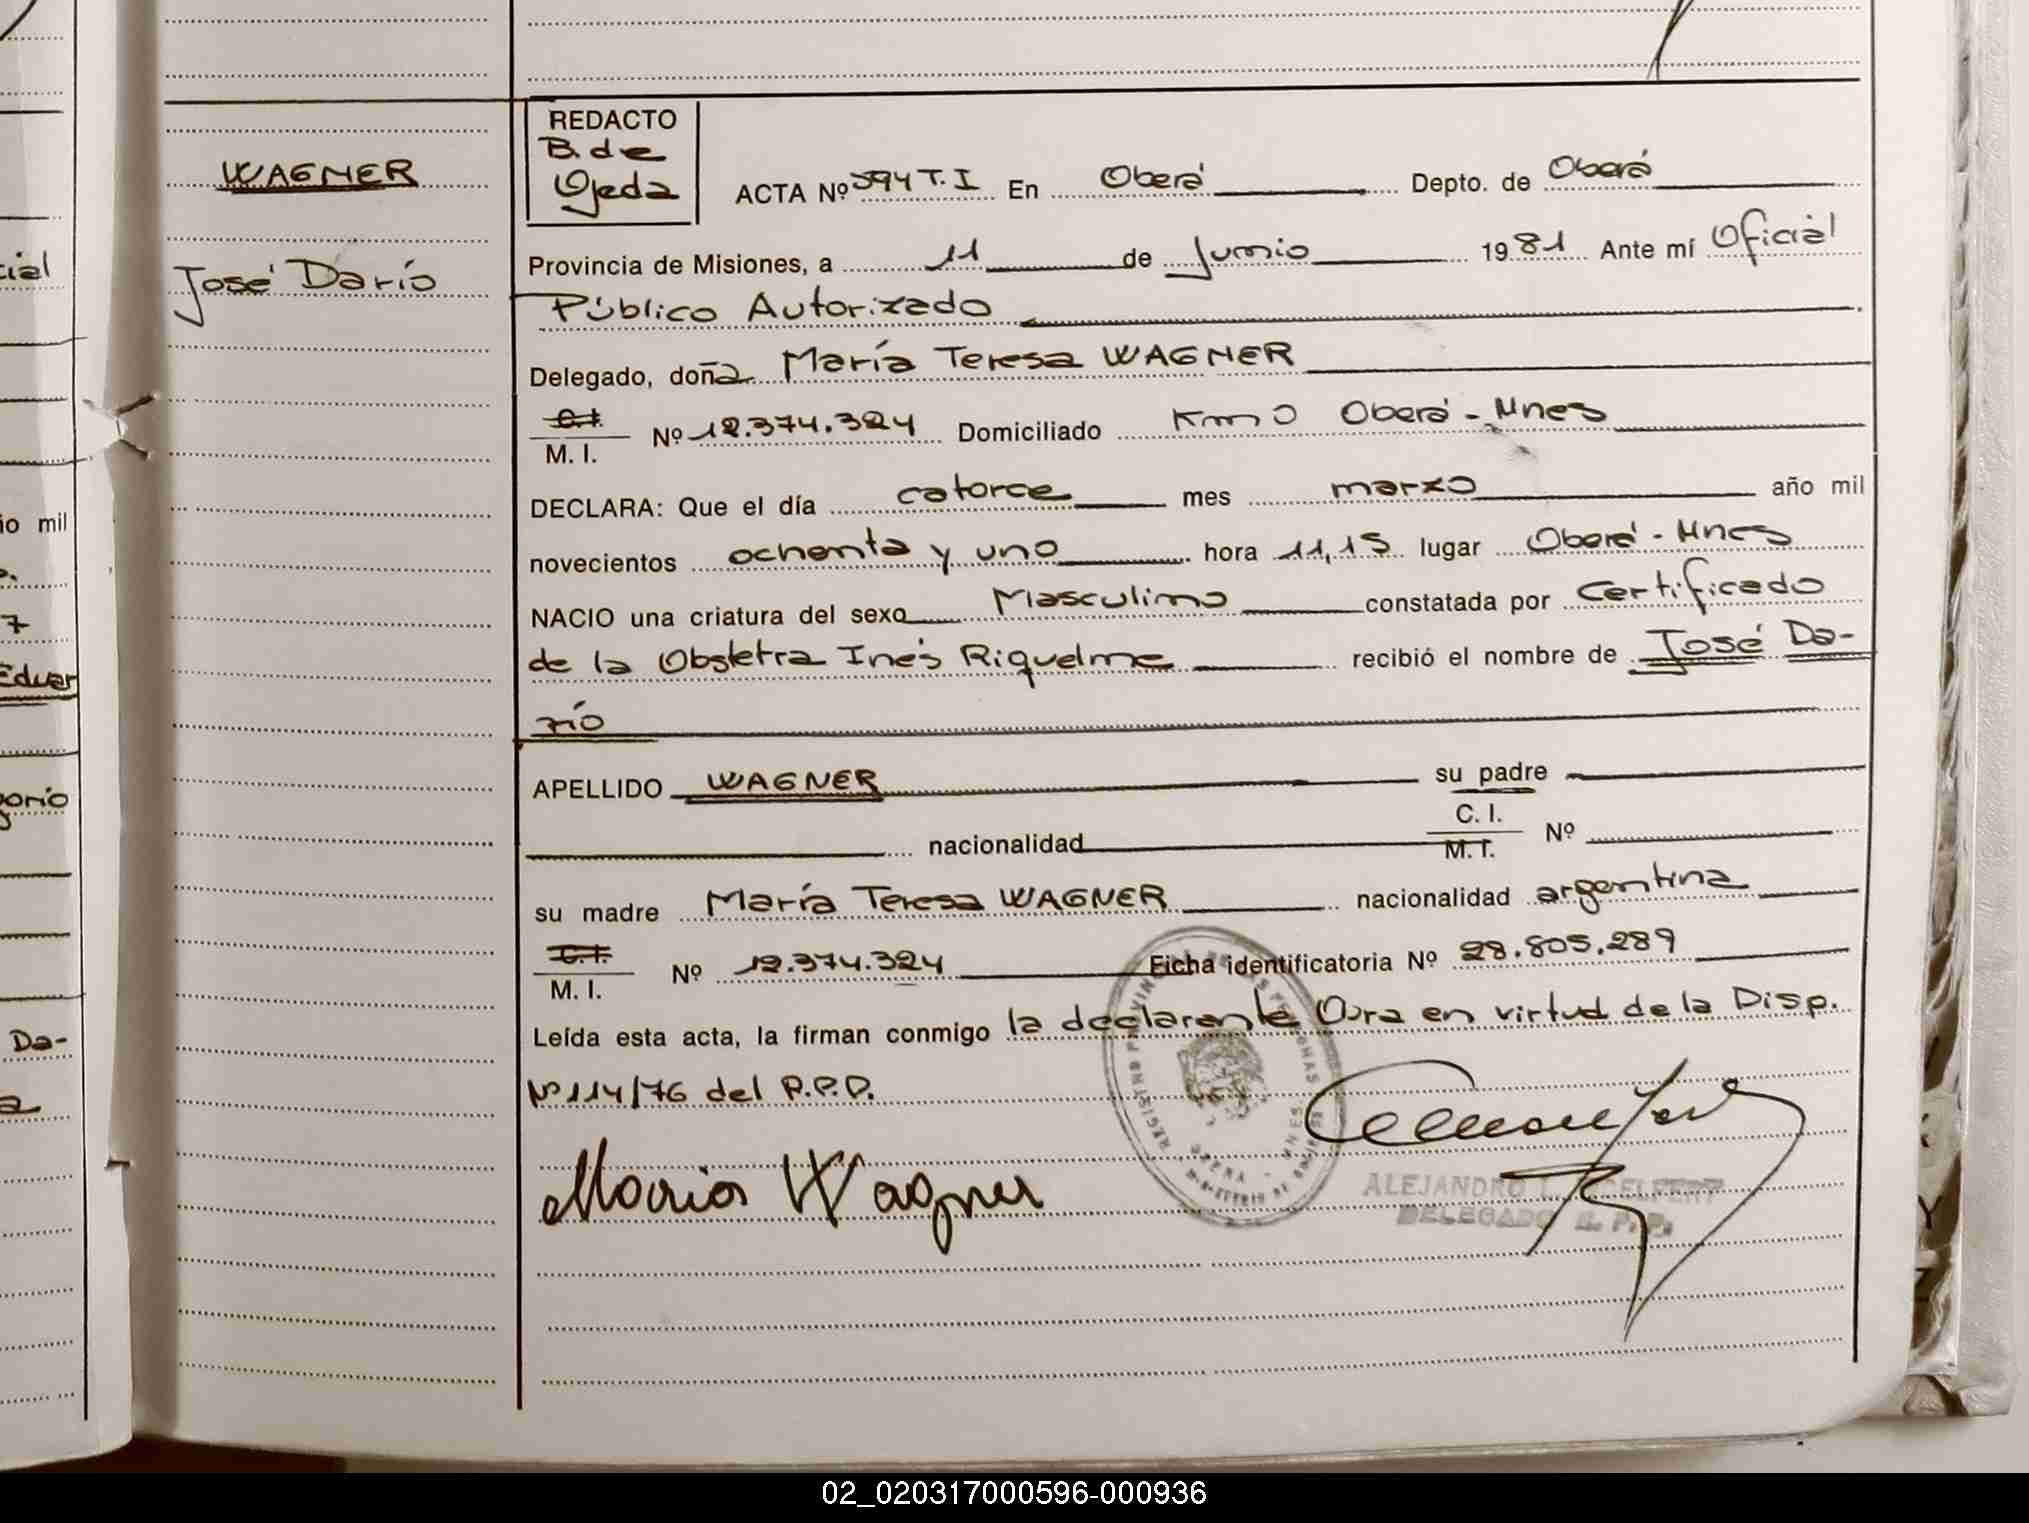 WAGNER
José Darío
REDACTO
B. de
Ojeda
ACTA Nº 594 T. I En Oberá Depto. de Oberá
Provincia de Misiones, a 11 de Junio 1981 Ante mí Oficial
Público Autorizado
Delegado, doña María Teresa WAGNER
C.I.
M. I. Nº 12.374.324 Domiciliado Km 0 Oberá - Mnes
DECLARA: Que el día catorce mes marzo año mil
novecientos ochenta y uno hora 11,15 lugar Oberá - Mnes
NACIO una criatura del sexo Masculino constatada por Certificado
de la Obstetra Inés Riquelme recibió el nombre de José Da-
río
APELLIDO WAGNER su padre
nacionalidad C. I.
M. I. Nº
su madre María Teresa WAGNER nacionalidad argentina
C.I.
M. I. Nº 12.374.324 Ficha identificatoria Nº 28.805.289
Leída esta acta, la firman conmigo la declarante Obra en virtud de la Disp.
Nº 114/76 del R.P.P.
María Wagner
ALEJANDRO L.
DELEGADO R. P. P.
ial
io mil
7
Eduar
gorio
Da-
a
02_020317000596-000936